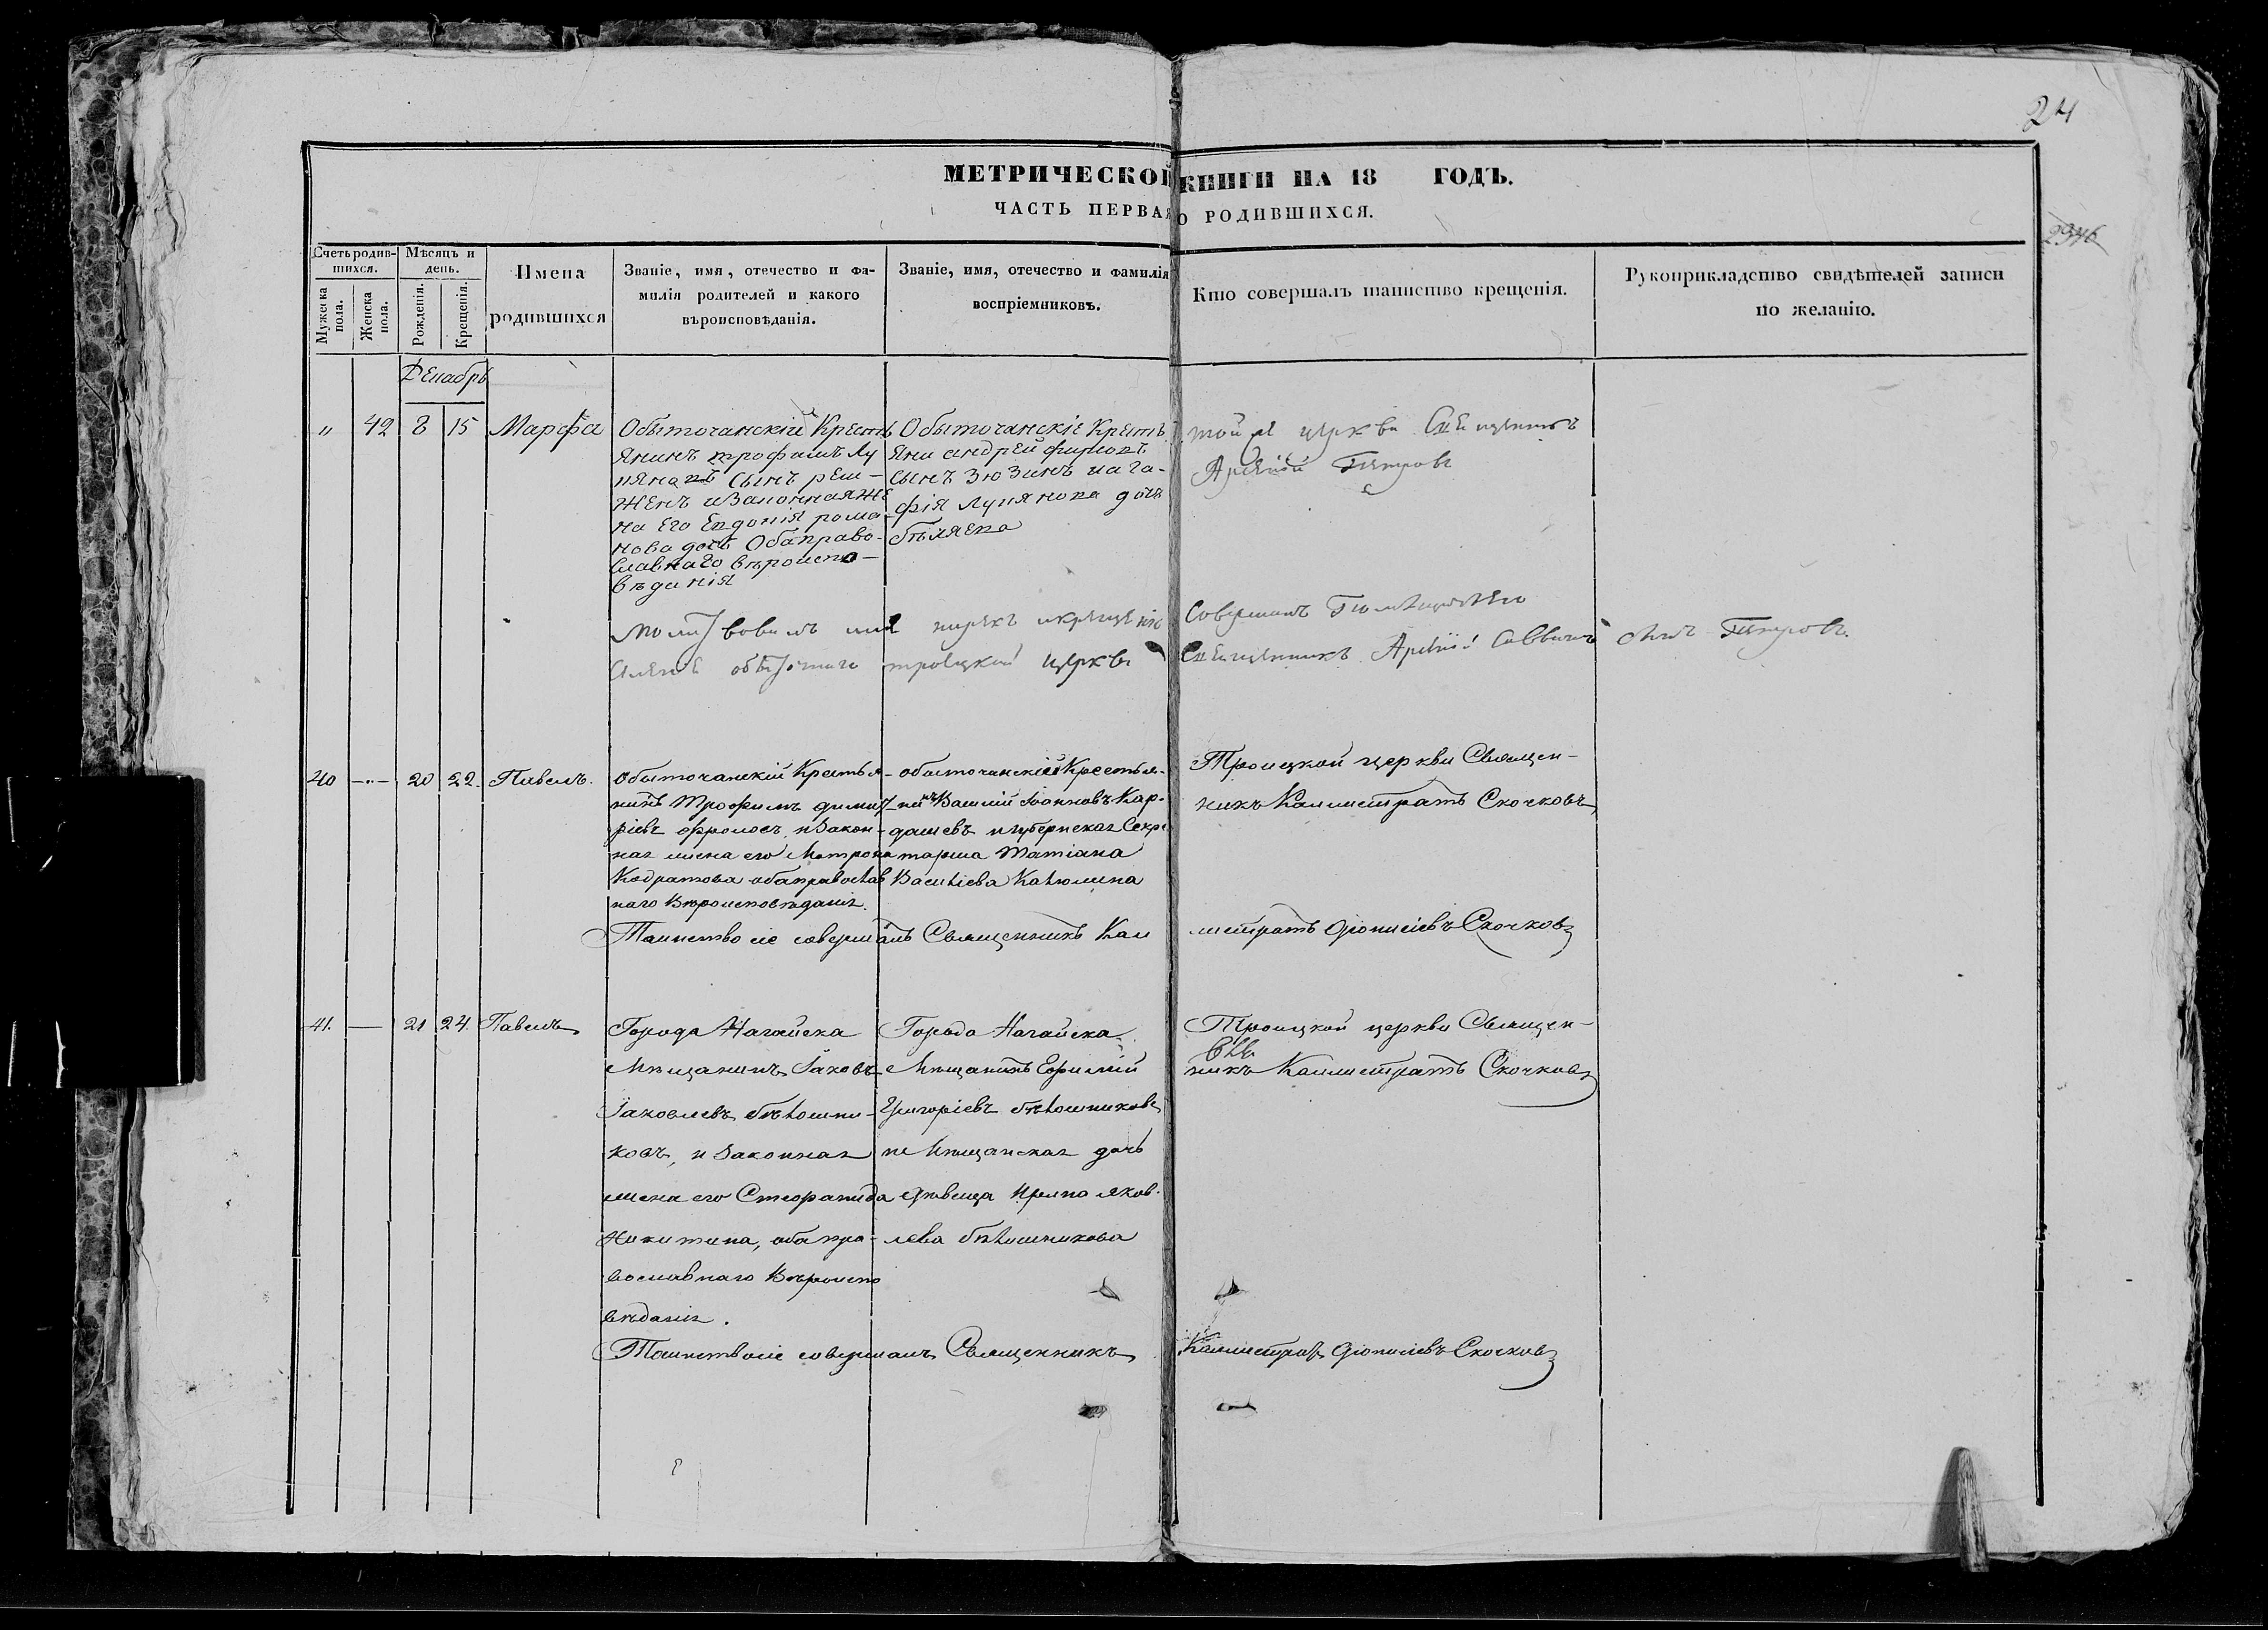 24
МЕТРИЧЕСКОЙ КНИГИ НА 18 ГОДЪ.
ЧАСТЬ ПЕРВАЯ О РОДИВШИХСЯ.
2346
Счетъ родив-
шихся.
Мужеска
пола.
Женска
пола.
Мѣсяцъ и
день.
Рожденія.
Крещенія.
Имена
родившихся
Званіе, имя, отечество и фа-
милія родителей и какого
вѣроисповѣданія.
Званіе, имя, отечество и фамилія
воспріемниковъ.
Кто совершалъ таинство крещенія.
Рукоприкладство свидѣтелей записи
по желанію.
Декабрь
„ 42 8 15 Марфа
Обыточанскій Кресть
янинъ трофимъ Лу
сынъ
и Законная же
на Его Евдокія рома-
нова дочь Оба право-
славнаго вѣроиспо-
вѣданія
Обыточанскіе Кресть
яни андрей фирсовъ
сынъ Зюзинъ и ага-
фія Лупянова дочь
бѣляева
той же церкви Священникъ
Арсеній Петровъ
имя нарекъ и крещеніе Совершилъ
троицкой церкви Священникъ Арсеній Саввичъ сынъ Петровъ.
40 —„— 20 22. Павелъ.
Обыточанскій Крестья-
нинъ Трофимъ димит
ріевъ Фроловъ, и Закон-
ная жена его Матрона
Кодратова оба православ
наго Вѣроисповѣданія.
обыточанскій Крестья-
нинъ Василій Іоанновъ Кар-
дашевъ и губернская Секре
тарша Татіана
Василіева Катюшина
Троицкой церкви Священ-
никъ Каллистратъ Скочковъ
Таинство сіе совершалъ Священникъ Кал листратъ Діонисіевъ Скочковъ
41. — 21 24. Павелъ
Города Нагайска
Мѣщанинъ Іаковъ
Іаковлевъ бѣлошни-
ковъ, и Законная
жена его Стефанида
Никитина, оба пра-
вославнаго Вѣроиспо
вѣданія.
Города Нагайска
Мѣщанинъ Ефимій
Григоріевъ бѣлошниковъ
и Мѣщанская дочь
дѣвица Ирина яков-
лева бѣлошникова
Троицкой церкви Священ-
никъ Каллистратъ Скочковъ
Таинство сіе совершалъ Священникъ Каллистратъ Діонисіевъ Скочковъ